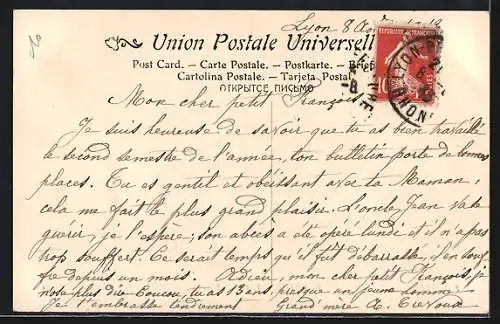 Lyon 8
Union Postale Universelle
Post Card. — Carte Postale. — Postkarte. — Brief
Cartolina Postale. — Tarjeta Postal
ОТКРЫТСЕ ПИСЬМО
Mon cher petit François
Je suis heureuse de savoir que tu as bien travaillé
le second semestre de l'année, ton bulletin porte de bonnes
places. Tu es gentil et obéissant avec ta Maman,
cela me fait le plus grand plaisir. L'oncle Jean va se
guérir, je l'espère; son abcès a été opéré lundi et il n'a pas
trop souffert. Ce serait temps qu'il fut débarrassé, il en souf
fre depuis un mois. Adieu, mon cher petit François, je
n'ose plus dire Coucou, tu as 13 ans, presque un jeune homme.
Je t'embrasse tendrement Grand'mère